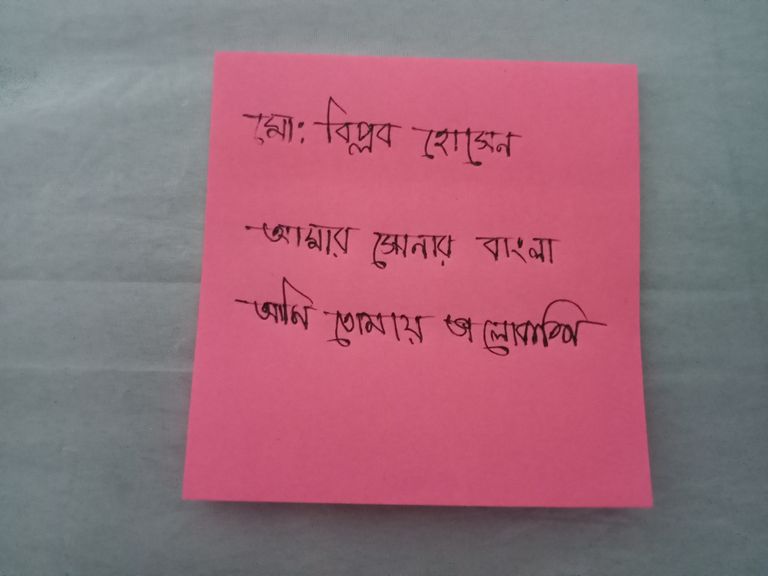 মো: বিপ্লব হোসেন
আমার সোনার বাংলা
আমি তোমায় ভালোবাসি